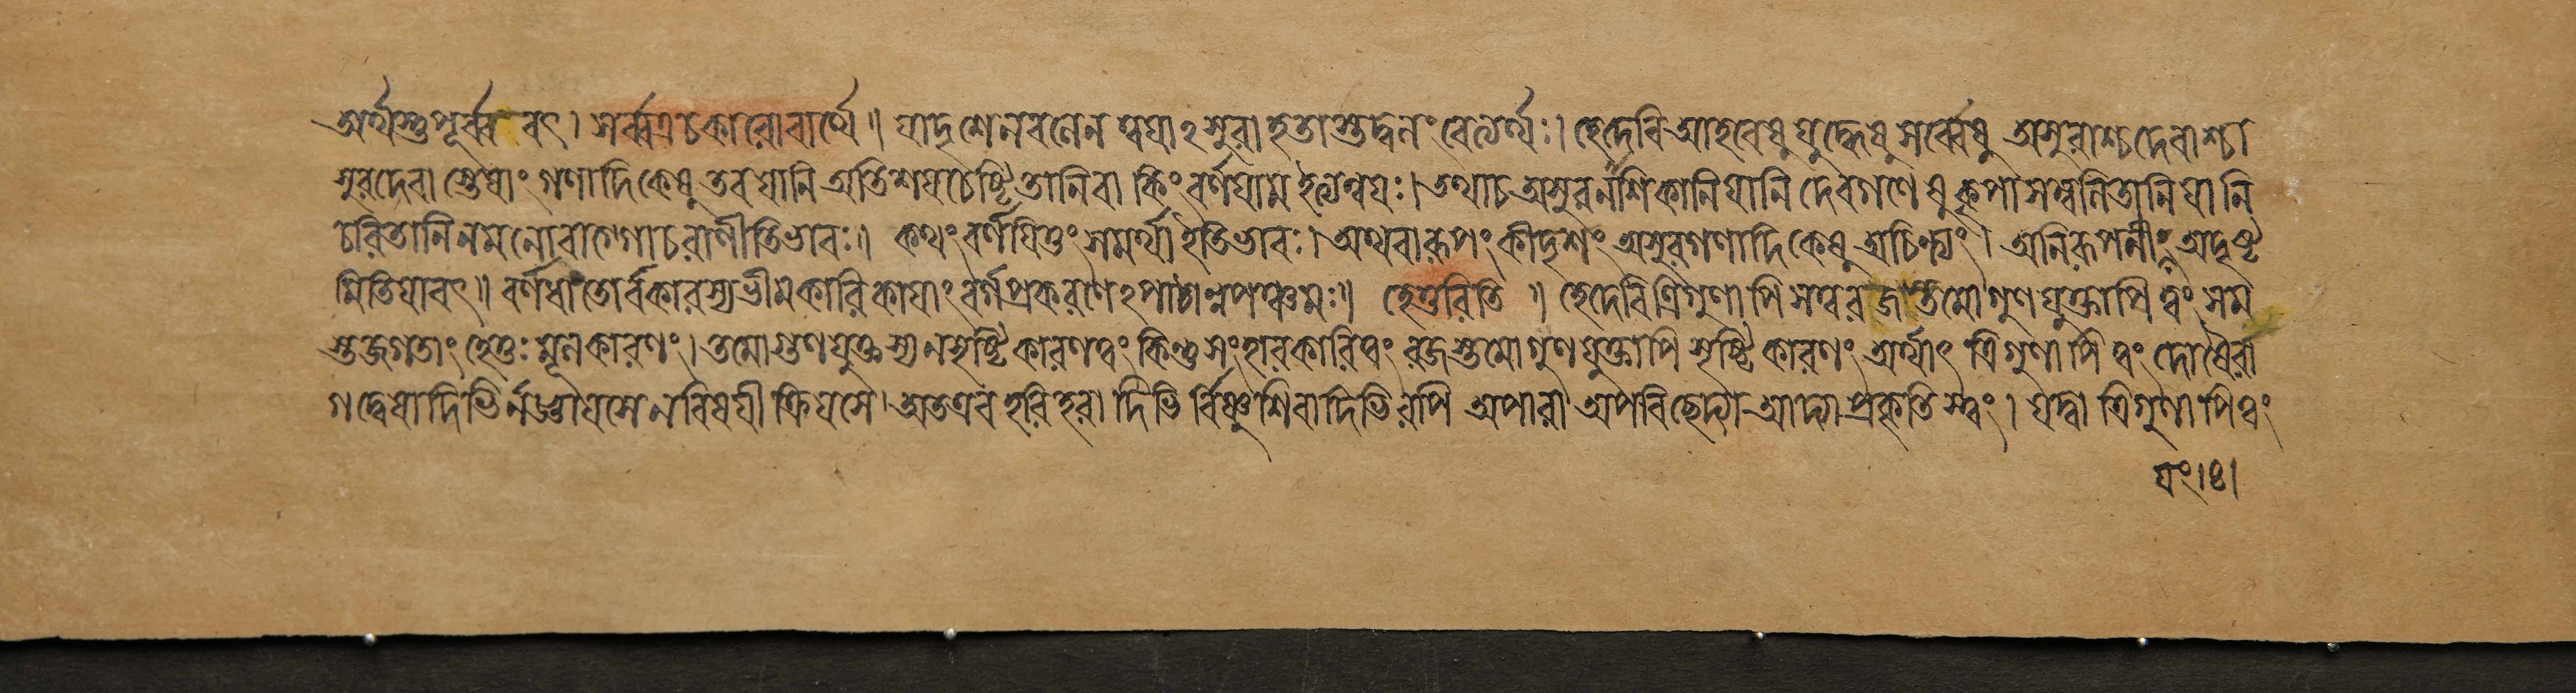 অর্থস্তুপূর্ব্ববৎ। সর্ব্বত্রচকারোবার্থে॥ যাদৃশেনবলেন ত্বযাঽসুরা হতাস্তদ্বলং বেত্যর্থঃ। হেদেবি আহবেষু যুদ্ধেষু সর্ব্বেষু অসুরাশ্চ দেবাশ্চা
সুরদেবা স্তেষাং গণাদিকেষু তব যানি অতিশযচেষ্টিতানিবা কিং বর্ণযাম ইত্যন্বযঃ। তথাচ অসুরনাশিকানি যানি দেবগণেষু কৃপাসম্বলিতানি যানি
চরিতানি নমনোবাগ্গোচরাণীতিভাবঃ॥ কথং বর্ণযিতুং সমর্থা ইতিভাবঃ। অথবা রূপং কীদৃশং অসুরগণাদিকেষু অচিন্ত্যং। অনিরূপনীযং অদৃষ্ট
মিতিযাবৎ॥ বর্ণধাতোর্বকারস্যভীমকারিকাযাং বর্গপ্রকরণেঽপাঠান্নপঞ্চমঃ॥ হেতুরিতি॥ হেদেবিত্রিগুণাপি সত্বরজস্তমোগুণযুক্তাপি ত্বং সম
স্তজগতাং হেতুঃ মূলকারণং। তমোগুণযুক্তস্য নসৃষ্টিকারণত্বং কিন্তু সংহারকারিত্বং রজস্তমোগুণযুক্তাপি সৃষ্টিকারণং অর্থাৎ ত্রিগুণাপি ত্বং দোষৈরা
গদ্বেষাদিভির্নজ্ঞাযসে নবিষযীক্রিযসে। অতএব হরিহরাদিভি র্বিষ্ণুশিবাদিভিরপি অপারা অপরিচ্ছেদ্যা আদ্যা প্রকৃতিস্ত্বং। যদ্বা ত্রিগুণাপিত্বং
যং।৪।